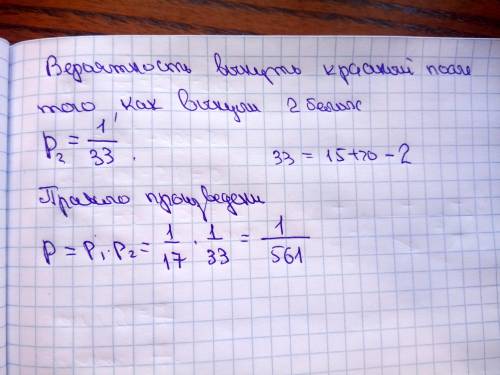 Вероятность вынуть красный после
того как вынули 2 белых
p₂ = 1/33. 33 = 15+20-2
Правило произведени
p = p₁·p₂ = 1/17 · 1/33 = 1/561